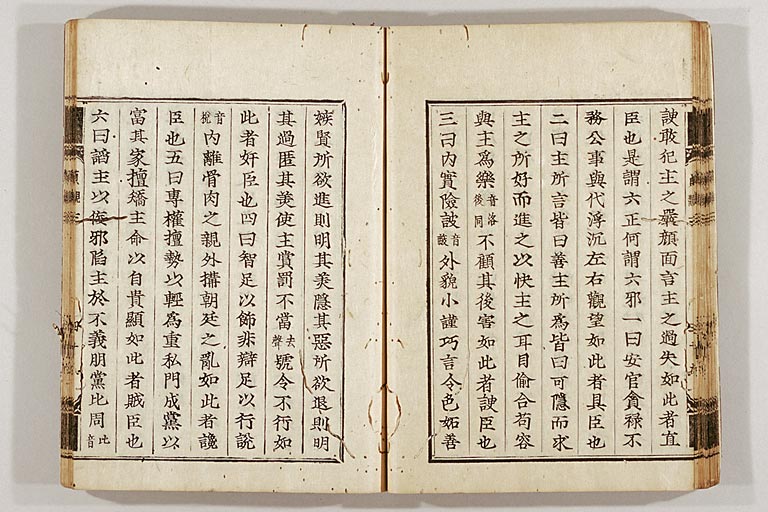 諛敢犯主之嚴顔面言主之過失如此者直
臣也是謂六正何謂六邪一曰安官貪祿不
務公事與代浮沉左右觀望如此者具臣也
二曰主所言皆曰善主所爲皆曰可隱而求
主之所好而進之以快主之耳目偷合苟容
與主爲樂音洛後同不顧其後害如此者諛臣也
三曰內實險詖音詖外貌小謹巧言令色妬善
嫉賢所欲進則明其美隱其惡所欲退則明
其過匿其美使主賞罰不當去聲號令不行如
此者奸臣也四曰智足以飾非辯足以行說
音稅內離骨肉之親外搆朝廷之亂如此者讒
臣也五曰專權擅勢以輕爲重私門成黨以
富其家擅矯主命以自貴顯如此者賊臣也
六曰謟主以佞邪陷主於不義朋黨比周比音